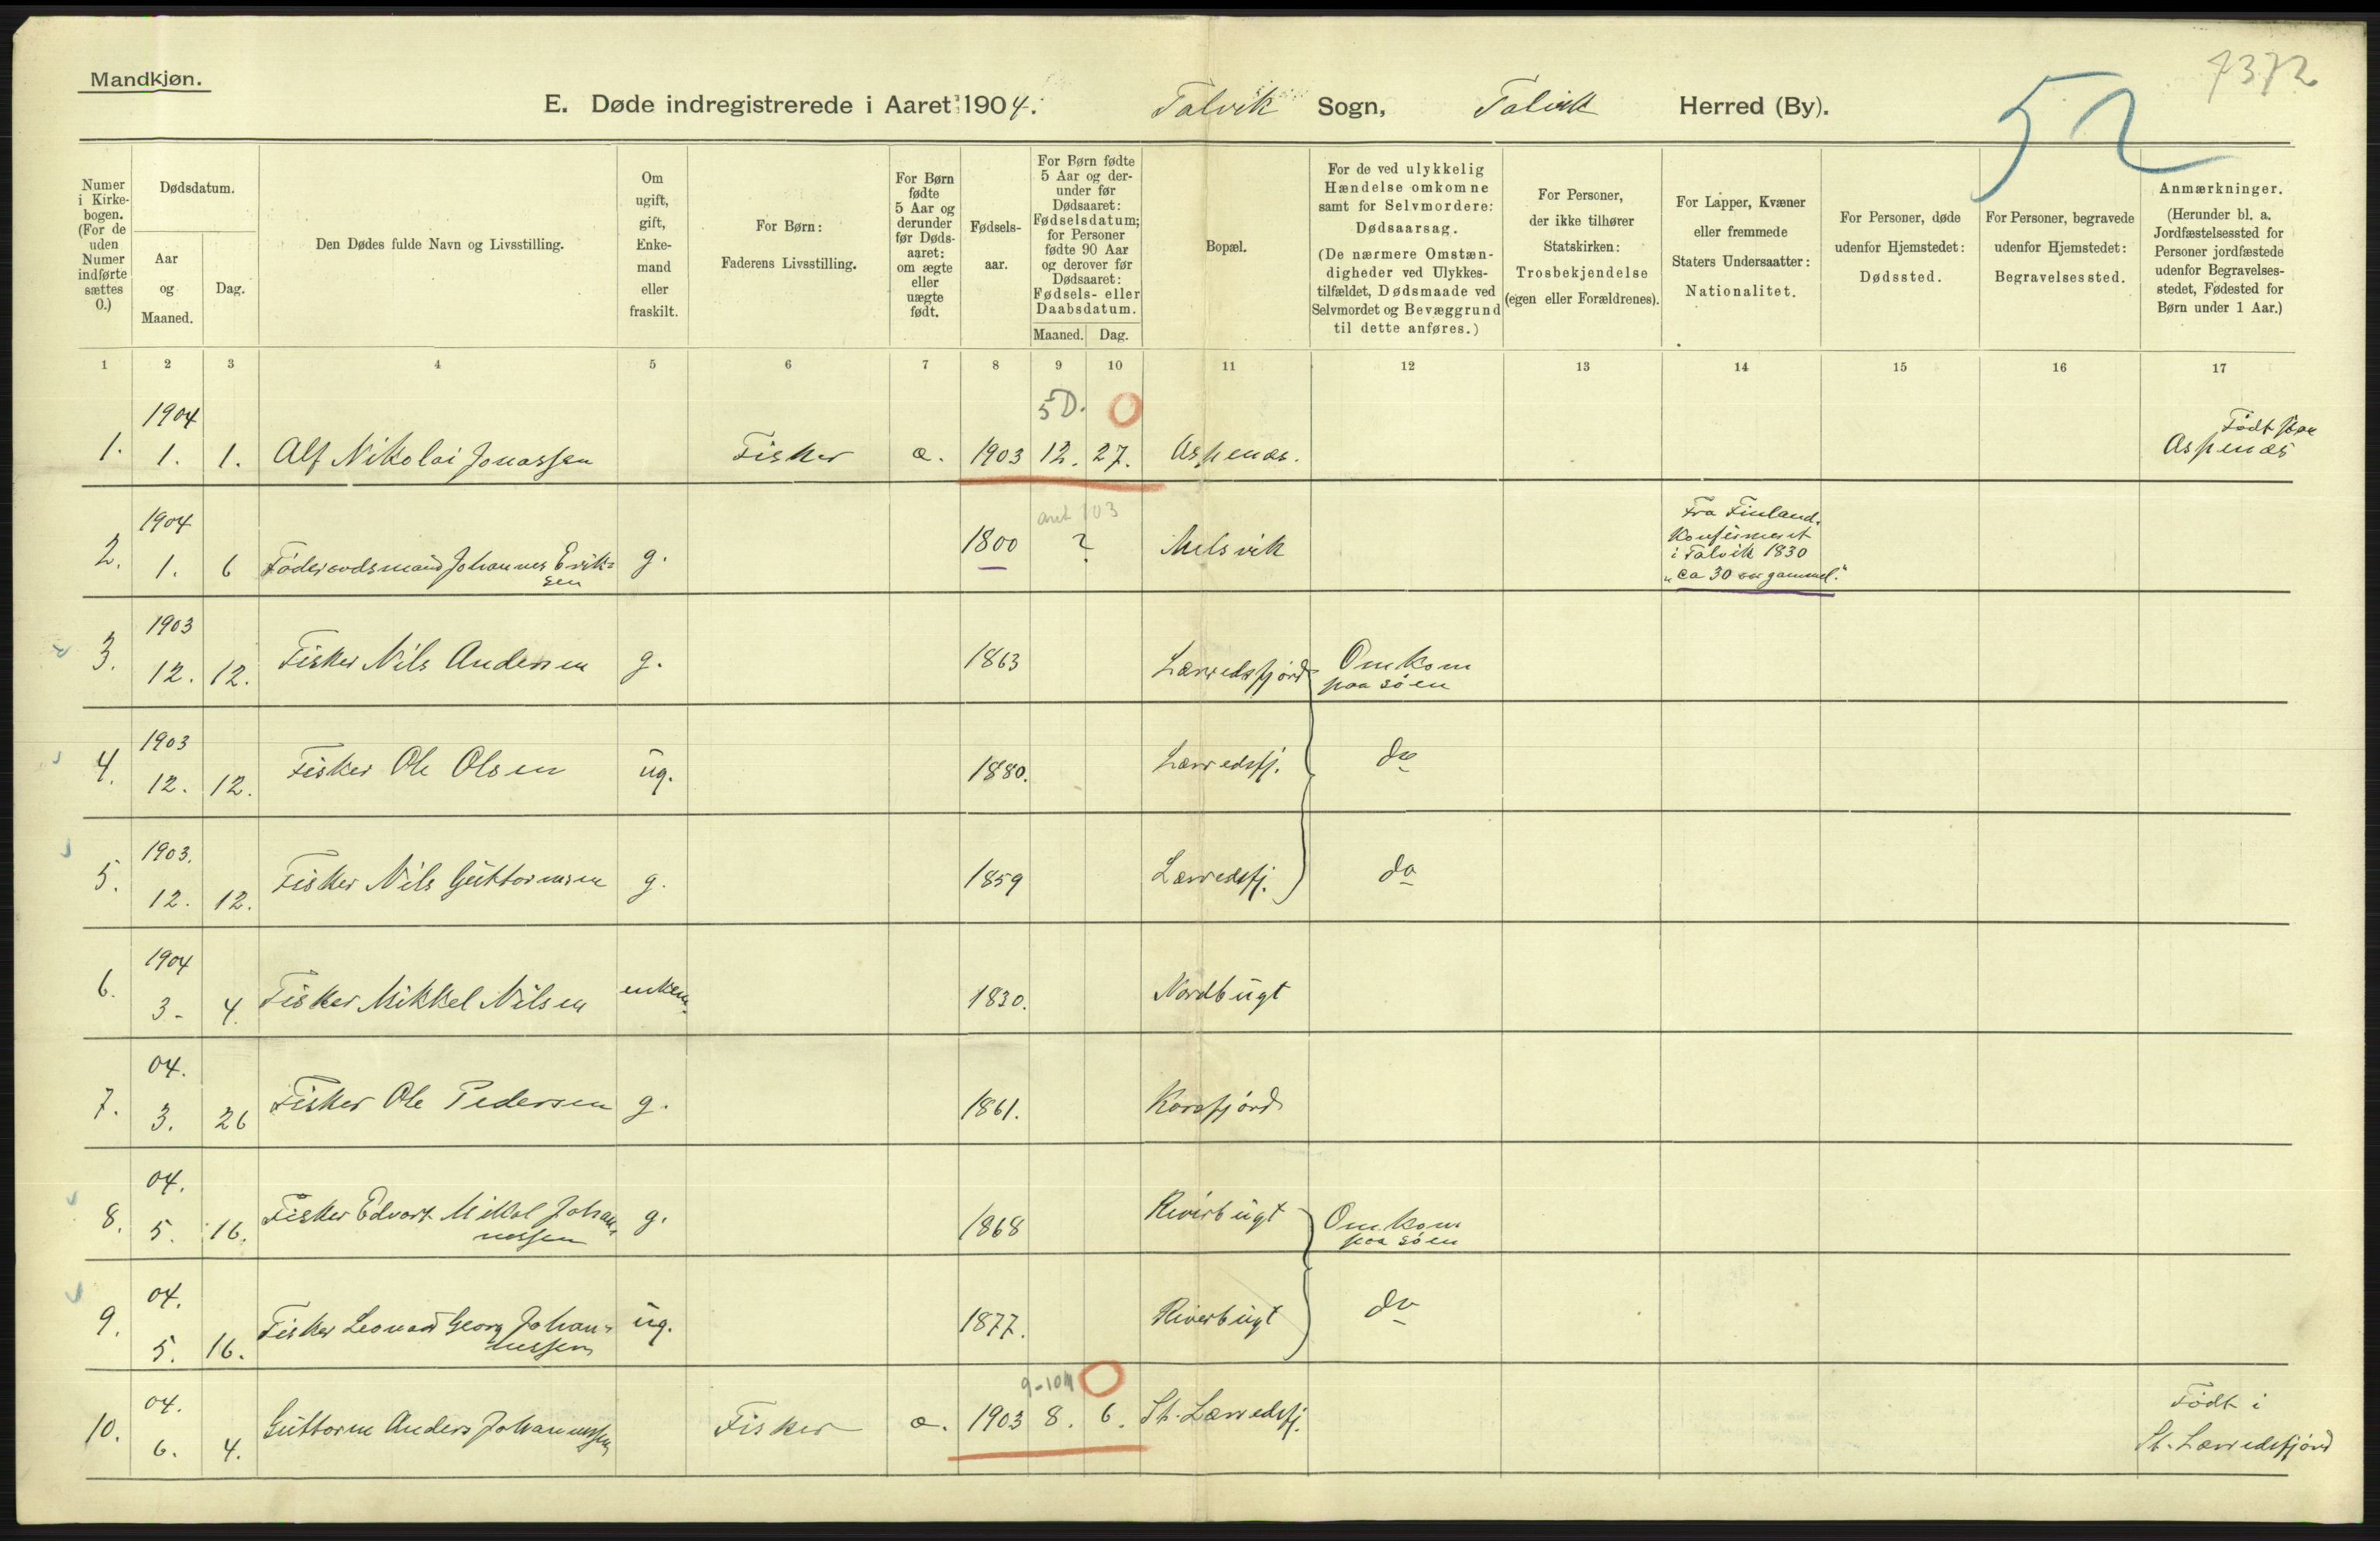 Mandkjøn.
7372
52
E. Døde indregistrerede i Aaret 1904. Talvik Sogn, Talvik Herred (By).
Numer i Kirke-bogen. (For de uden Numer indførte sættes 0.)
Dødsdatum.
Aar og Maaned.
Dag.
Den Dødes fulde Navn og Livsstilling.
Om ugift, gift, Enke-mand eller fraskilt.
For Børn: Faderens Livsstilling.
For Børn fødte 5 Aar og derunder før Døds-aaret: om ægte eller uægte født.
Fødsels-aar.
For Børn fødte 5 Aar og der-under før Dødsaaret: Fødselsdatum; for Personer fødte 90 Aar og derover før Dødsaaret: Fødsels- eller Daabsdatum.
Maaned. Dag.
Bopæl.
For de ved ulykkelig Hændelse omkomne samt for Selvmordere: Dødsaarsag. (De nærmere Omstæn-digheder ved Ulykkes-tilfældet, Dødsmaade ved Selvmordet og Bevæggrund til dette anføres.)
For Personer, der ikke tilhører Statskirken: Trosbekjendelse (egen eller Forældrenes).
For Lapper, Kvæner eller fremmede Staters Undersaatter: Nationalitet.
For Personer, døde udenfor Hjemstedet: Dødssted.
For Personer, begravede udenfor Hjemstedet: Begravelsessted.
Anmærkninger. (Herunder bl. a. Jordfæstelsessted for Personer jordfæstede udenfor Begravelses-stedet, Fødested for Børn under 1 Aar.)
1 2 3 4 5 6 7 8 9 10 11 12 13 14 15 16 17
1904 5 D. 0
1. 1. 1. Alf Nikolai Jonassen Fisker æ. 1903 12. 27. Aspenæs. Født paa Aspenæs
1904 103
2. 1. 6 Føderaadsmand Johannes Erik-sen g. 1800 ? Melsvik Fra Finland. Konfirmeret i Talvik 1830 "ca 30 aar gammel."
1903
3. 12. 12. Fisker Nils Andersen g. 1863 Lærredsfjord Omkom paa søen
1903
4. 12. 12. Fisker Ole Olsen ug. 1880. Lærredsfj. do
1903.
5. 12. 12. Fisker Nils Guttormsen g. 1859 Lærredsfj. do
1904
6. 3- 4. Fisker Mikkel Nilsen enkem. 1830. Nordbugt
04.
7. 3. 26 Fisker Ole Pedersen g. 1861. Korsfjord
04.
8. 5. 16. Fisker Edvart Mikal Johan-nessen g. 1868 Riverbugt Omkom paa søen
04.
9. 5. 16. Fisker Leonard Georg Johan-nessen ug. 1877. Riverbugt do
04. 9-10 M 0
10. 6. 4. Guttorm Anders Johannessen Fisker æ. 1903 8. 6. St. Lærredsfj. Født i St. Lærredsfjord